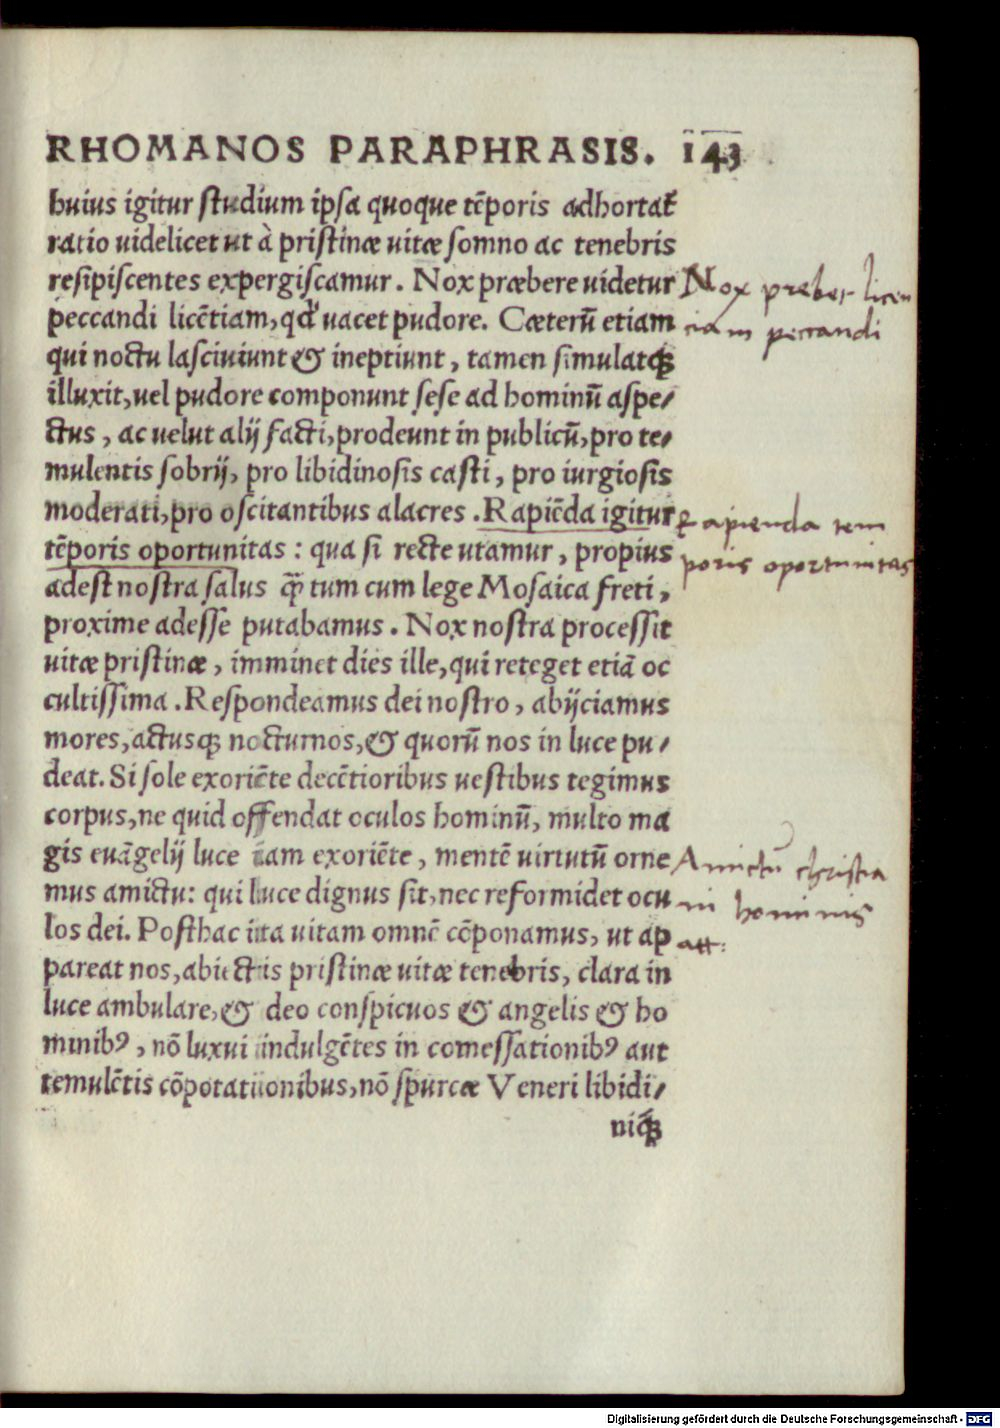 RHOMANOS PARAPHRASIS. 143
huius igitur studium ipsa quoque tēporis adhortat᷑
ratio uidelicet ut à pristinæ uitæ somno ac tenebris
resipiscentes expergiscamur. Nox præbere uidetur
peccandi licētiam, qđ uacet pudore. Cæterū etiam
qui noctu lasciuiunt & ineptiunt, tamen simulatq;
illuxit, uel pudore componunt sese ad hominū aspe/
ctus, ac uelut alij facti, prodeunt in publicū, pro te/
mulentis sobrij, pro libidinosis casti, pro iurgiosis
moderati, pro oscitantibus alacres. Rapiēda igitur
tēporis oportunitas: qua si recte utamur, propius
adest nostra salus q̄ tum cum lege Mosaica freti,
proxime adesse putabamus. Nox nostra processit
uitæ pristinæ, imminet dies ille, qui reteget etiā oc
cultissima. Respondeamus dei nostro, abijciamus
mores, actusq; nocturnos, & quorū nos in luce pu/
deat. Si sole exoriēte decētioribus uestibus tegimus
corpus, ne quid offendat oculos hominū, multo ma
gis euāgelij luce iam exoriēte, mentē uirtutū orne
mus amictu: qui luce dignus sit, nec reformidet ocu
los dei. Posthac ita uitam omnē cōponamus, ut ap
pareat nos, abiectis pristinæ uitæ tenebris, clara in
luce ambulare, & deo conspicuos & angelis & ho
minibꝰ, nō luxui indulgētes in comessationibꝰ aut
temulētis cōpotationibus, nō spurcæ Veneri libidi/
niq́;
Nox præber licen
ciam peccandi
Rapienda tem
poris oportunitas
Amictū christia
ni hominis
att:
Digitalisierung gefördert durch die Deutsche Forschungsgemeinschaft - DFG